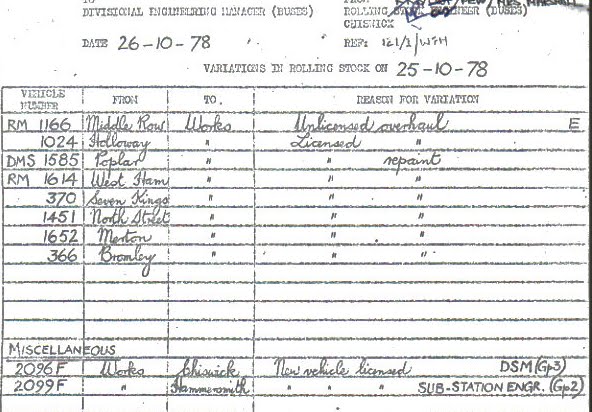 TO FROM
DIVISIONAL ENGINEERING MANAGER (BUSES) ROLLING STOCK ENGINEER (BUSES)
CHISWICK
DATE 26-10-78 REF:
VARIATIONS IN ROLLING STOCK ON 25-10-78
VEHICLE NUMBER FROM TO. REASON FOR VARIATION
RM 1166 Middle Row Works Unlicensed overhaul E
1024 Holloway " Licensed "
DMS 1585 Poplar " " repaint
RM 1614 West Ham " " "
370 Seven Kings " " "
1451 North Street " " "
1652 Merton " " "
366 Bromley " " "
MISCELLANEOUS
2096F Works Chiswick New vehicle licensed DSM (Gp3)
2099F " Hammersmith " " " SUB-STATION ENGR. (Gp2)